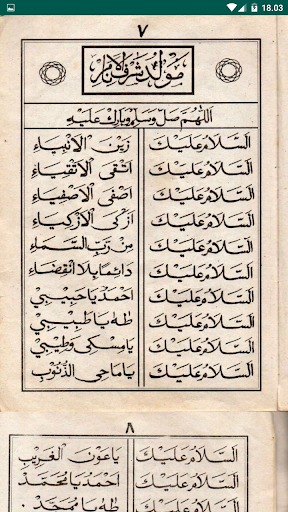 18.03
٧
مَوْلِدُ شَرَفِ الْأَنَامِ
اَللّٰهُمَّ صَلِّ وَسَلِّمْ وَبَارِكْ عَلَيْهِ
اَلسَّلَامُ عَلَيْكَ زَيْنَ الْأَنْبِيَاءِ
اَلسَّلَامُ عَلَيْكَ اَتْقَى الْأَتْقِيَاءِ
اَلسَّلَامُ عَلَيْكَ اَصْفَى الْأَصْفِيَاءِ
اَلسَّلَامُ عَلَيْكَ اَزْكَى الْأَزْكِيَاءِ
اَلسَّلَامُ عَلَيْكَ مِنْ رَبِّ السَّمَاءِ
اَلسَّلَامُ عَلَيْكَ دَائِمًا بِلَا انْقِضَاءِ
اَلسَّلَامُ عَلَيْكَ اَحْمَدْ يَا حَبِيْبِيْ
اَلسَّلَامُ عَلَيْكَ طٰهٰ يَا طَبِيْبِيْ
اَلسَّلَامُ عَلَيْكَ يَا مِسْكِيْ وَطِيْبِيْ
اَلسَّلَامُ عَلَيْكَ يَا مَاحِي الذُّنُوْبِ
٨
اَلسَّلَامُ عَلَيْكَ يَا عَوْنَ الْغَرِيْبِ
اَلسَّلَامُ عَلَيْكَ اَحْمَدُ يَا مُحَمَّدْ
اَلسَّلَامُ عَلَيْكَ طٰهٰ يَا مُمَجَّدْ